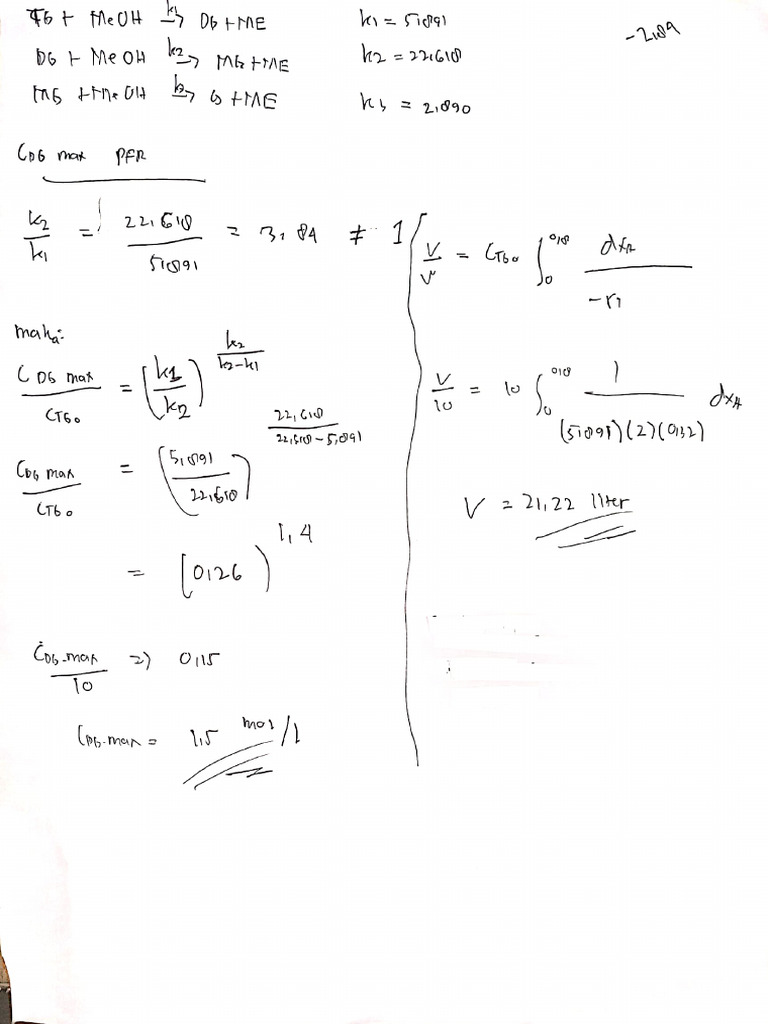 TG + MeOH k1→ DG + ME k1 = 5,891
DG + MeOH k2→ MG + ME k2 = 22,618
MG + MeOH k3→ G + ME k3 = 2,890
-2,89
CDG max PFR
k2/k1 = 22,618/5,891 = 3,84 ≠ 1
maka:
CDG max/CTG0 = (k1/k2)^(k2/(k2-k1))
CDG max/CTG0 = (5,891/22,618)^(22,618/(22,618-5,891))
= (0,26)^1,4
CDG-max/10 => 0,15
CDG-max = 1,5 mol/l
V/v = CTG0 ∫0^0,8 dxA/-r1
V/10 = 10 ∫0^0,8 1/((5,891)(2)(0,32)) dxA
V = 21,22 liter